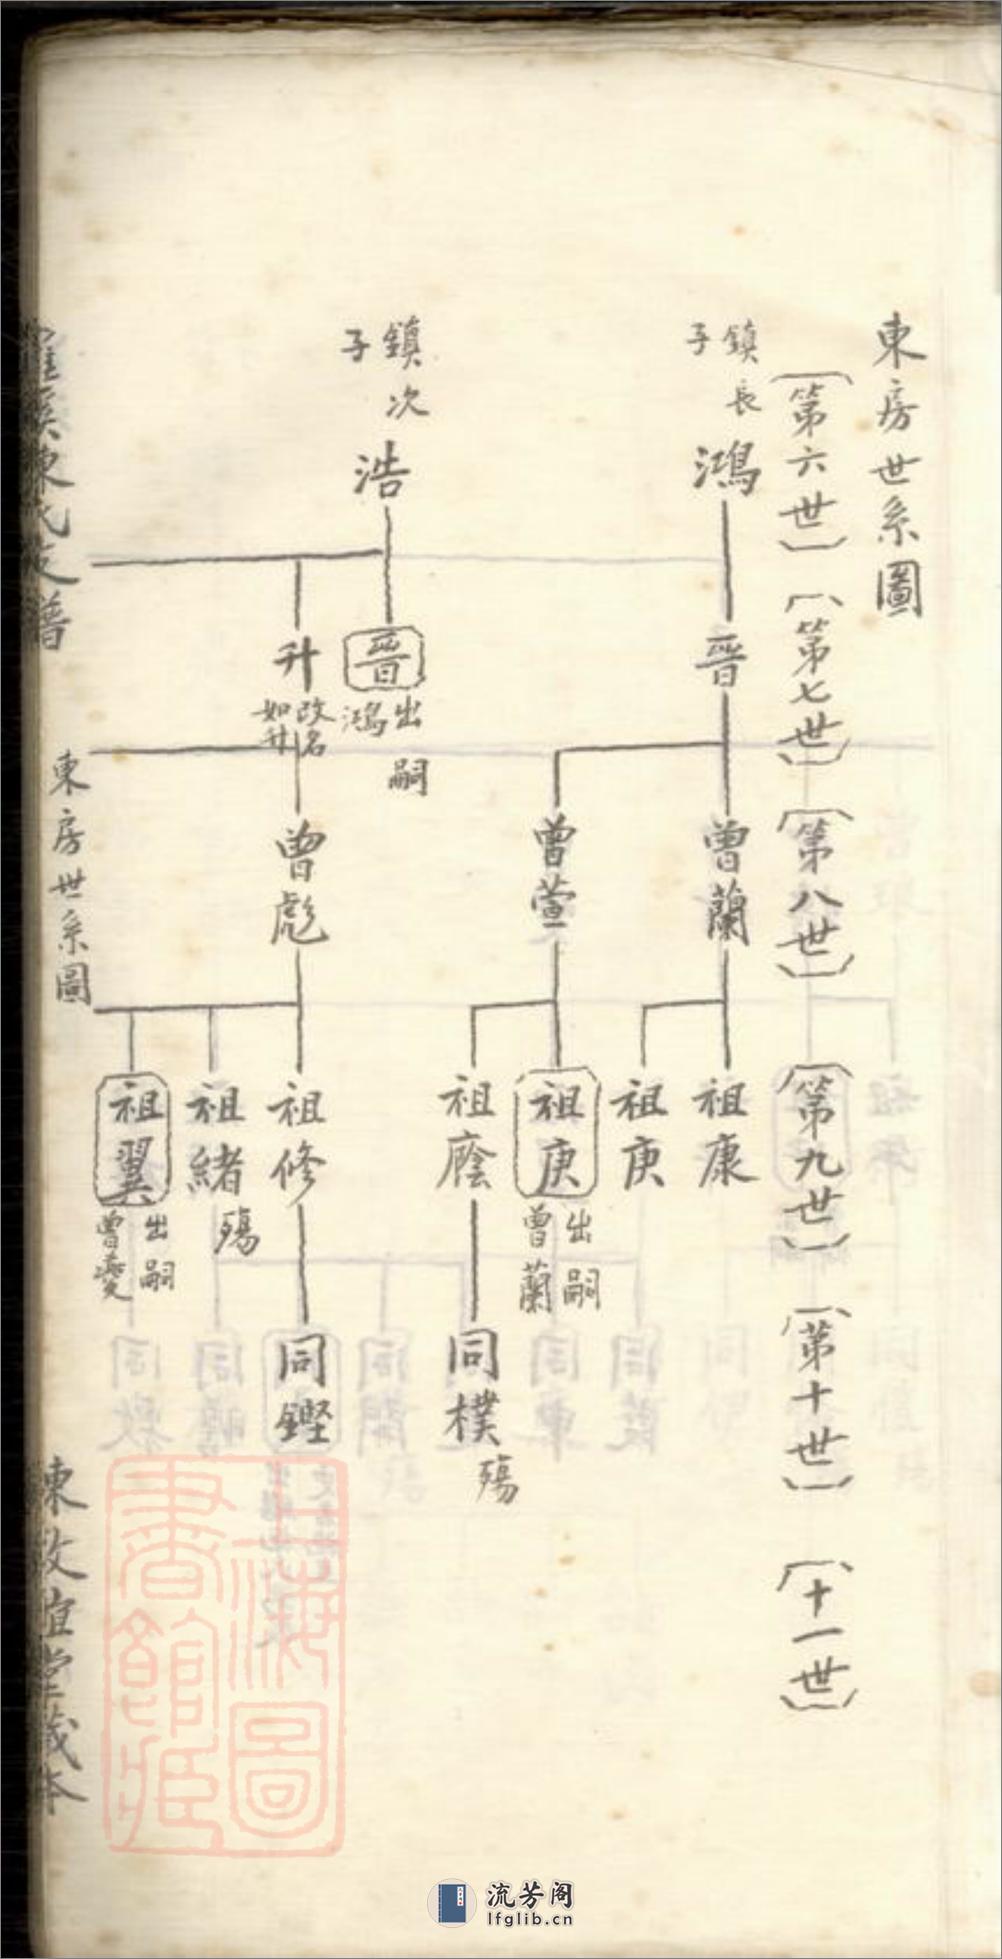 東房世系圖
第六世
第七世
第八世
第九世
第十世
十一世
鎮長子
鴻
晉
曾蘭
祖康
祖庚
曾萱
祖庚
出嗣曾蘭
祖廕
同樸
殤
鎮次子
浩
晉
出嗣鴻
升
改名如升
曾彪
祖修
同鏗
祖緒
殤
祖翼
出嗣曾夔
陳氏支譜
東房世系圖
陳敦誼堂藏本
上海圖書館藏
流芳阁
lfglib.cn